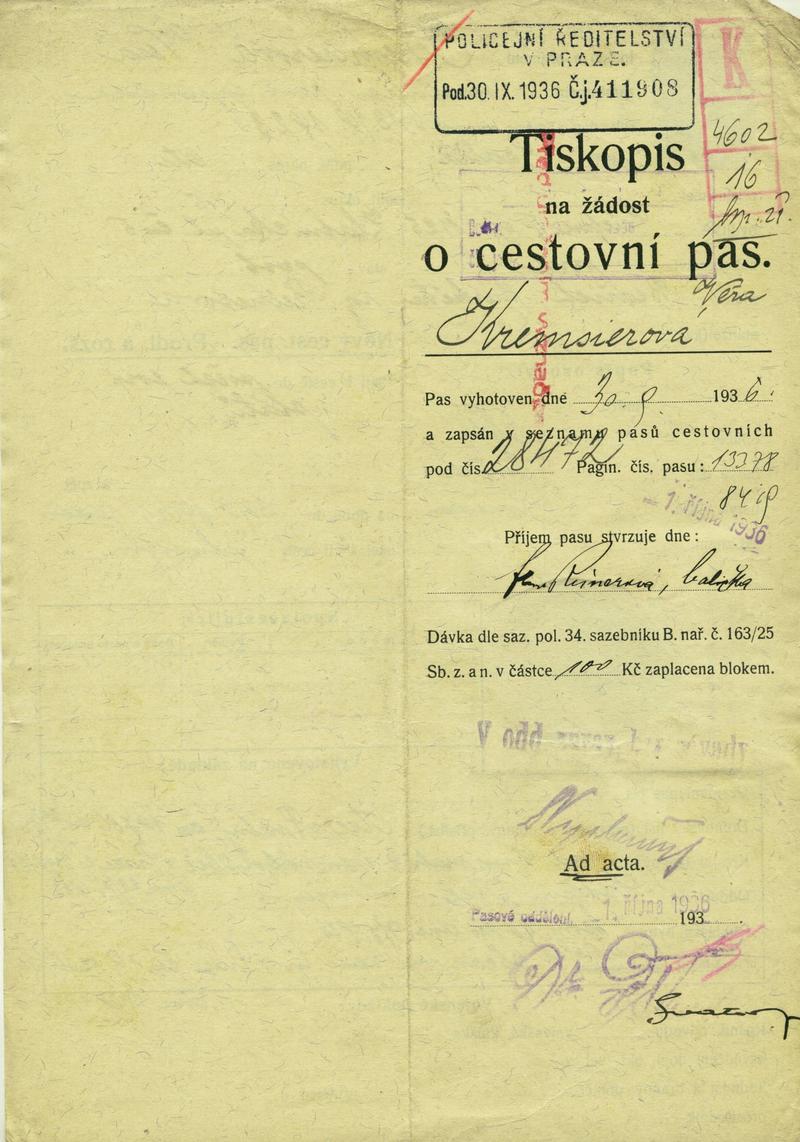 POLICEJNÍ ŘEDITELSTVÍ
V PRAZE.
Pod.30.IX.1936 Č.j.411908
K
4602
16
Tiskopis
na žádost
o cestovní pas.
Věra
Kremsierová
Pas vyhotoven dne 30. 9. 1936.
a zapsán v seznamu pasů cestovních
pod čís. 28472 Pagin. čís. pasu: 13378
8419
-1. října 1936
Příjem pasu stvrzuje dne:
Dávka dle saz. pol. 34. sazebníku B. nař. č. 163/25
Sb. z. a n. v částce 100 Kč zaplacena blokem.
Ad acta.
Pasové oddělení. -1. října 1936 193 .